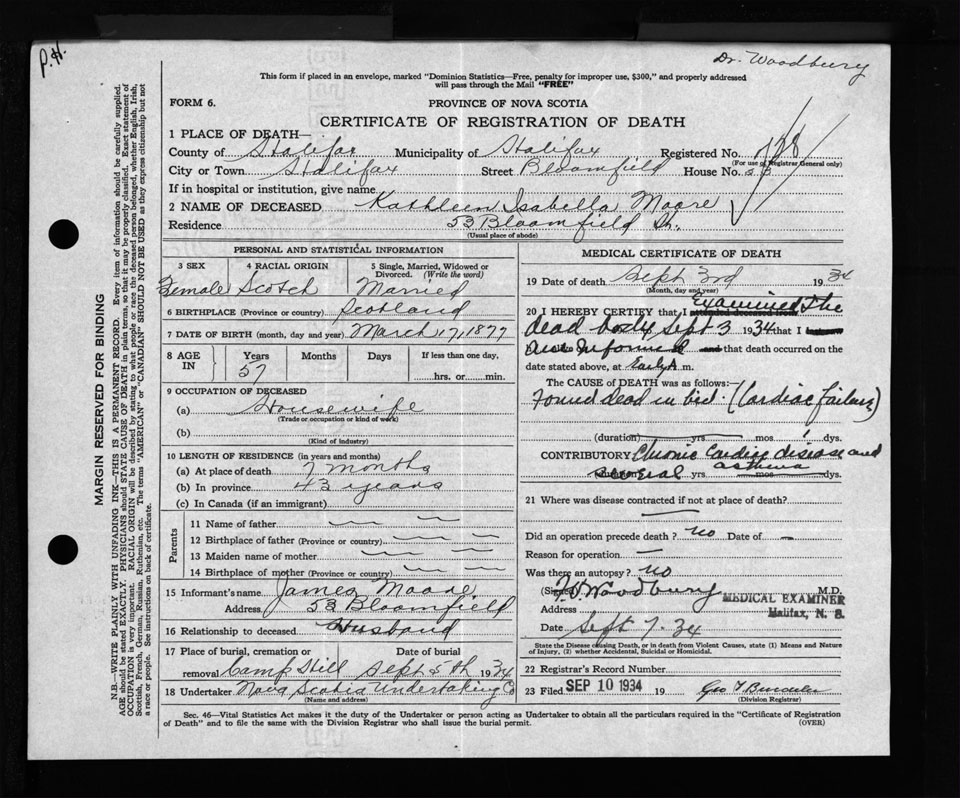 P.H.
Dr. Woodbury
This form if placed in an envelope, marked "Dominion Statistics—Free, penalty for improper use, $300," and properly addressed
will pass through the Mail "FREE"
FORM 6.
PROVINCE OF NOVA SCOTIA
CERTIFICATE OF REGISTRATION OF DEATH
1 PLACE OF DEATH—
County of Halifax Municipality of Halifax Registered No.
(For use of Registrar General only)
City or Town Halifax Street Bloomfield House No. 53
If in hospital or institution, give name
2 NAME OF DECEASED Kathleen Isabella Moore
Residence 53 Bloomfield St.
(Usual place of abode)
PERSONAL AND STATISTICAL INFORMATION
3 SEX 4 RACIAL ORIGIN 5 Single, Married, Widowed or
Divorced. (Write the word)
Female Scotch Married
6 BIRTHPLACE (Province or country) Scotland
7 DATE OF BIRTH (month, day and year) March 17, 1877
8 AGE IN Years Months Days If less than one day,
57 hrs. or min.
9 OCCUPATION OF DECEASED
(a) Housewife
(Trade or occupation or kind of work)
(b)
(Kind of industry)
10 LENGTH OF RESIDENCE (in years and months)
(a) At place of death 7 months
(b) In province 43 years
(c) In Canada (if an immigrant)
Parents
11 Name of father
12 Birthplace of father (Province or country)
13 Maiden name of mother
14 Birthplace of mother (Province or country)
15 Informant's name James Moore
Address 53 Bloomfield
16 Relationship to deceased Husband
17 Place of burial, cremation or Date of burial
removal Camp Hill Sept 5th 1934
18 Undertaker Nova Scotia Undertaking Co
(Name and address)
MEDICAL CERTIFICATE OF DEATH
19 Date of death Sept 3rd 1934
(Month, day and year)
20 I HEREBY CERTIFY that I attended deceased from Examined The
dead body Sept 3 1934 that I
am Informed and that death occurred on the
date stated above, at Early A m.
The CAUSE OF DEATH was as follows:
Found dead in bed. (Cardiac failure)
(duration) yrs mos dys.
CONTRIBUTORY Chronic Cardiac disease and
asthma
(duration) several yrs mos dys.
21 Where was disease contracted if not at place of death?
Did an operation precede death? no Date of —
Reason for operation —
Was there an autopsy? no
(Signed) Woodbury M.D.
MEDICAL EXAMINER
Halifax, N. S.
Address
Date Sept 7. 34
State the Disease causing Death, or in death from Violent Causes, state (1) Means and Nature
of Injury, (2) whether Accidental, Suicidal or Homicidal.
22 Registrar's Record Number
23 Filed SEP 10 1934 19 Geo
(Division Registrar)
Sec. 46—Vital Statistics Act makes it the duty of the Undertaker or person acting as Undertaker to obtain all the particulars required in the "Certificate of Registration
of Death" and to file the same with the Division Registrar who shall issue the burial permit.
(OVER)
MARGIN RESERVED FOR BINDING
N.B.—WRITE PLAINLY WITH UNFADING INK—THIS IS A PERMANENT RECORD. Every item of information should be carefully supplied.
AGE should be stated EXACTLY. PHYSICIANS should STATE CAUSE OF DEATH in plain terms, so that it may be properly classified. Exact statement of
OCCUPATION is very important. RACIAL ORIGIN will be described by stating to what people or race the deceased person belonged, whether English, Irish,
Scottish, French, German, Russian, Ruthenian, etc. The terms "AMERICAN" or "CANADIAN" SHOULD NOT BE USED as they express citizenship but not
a race or people. See instructions on back of certificate.